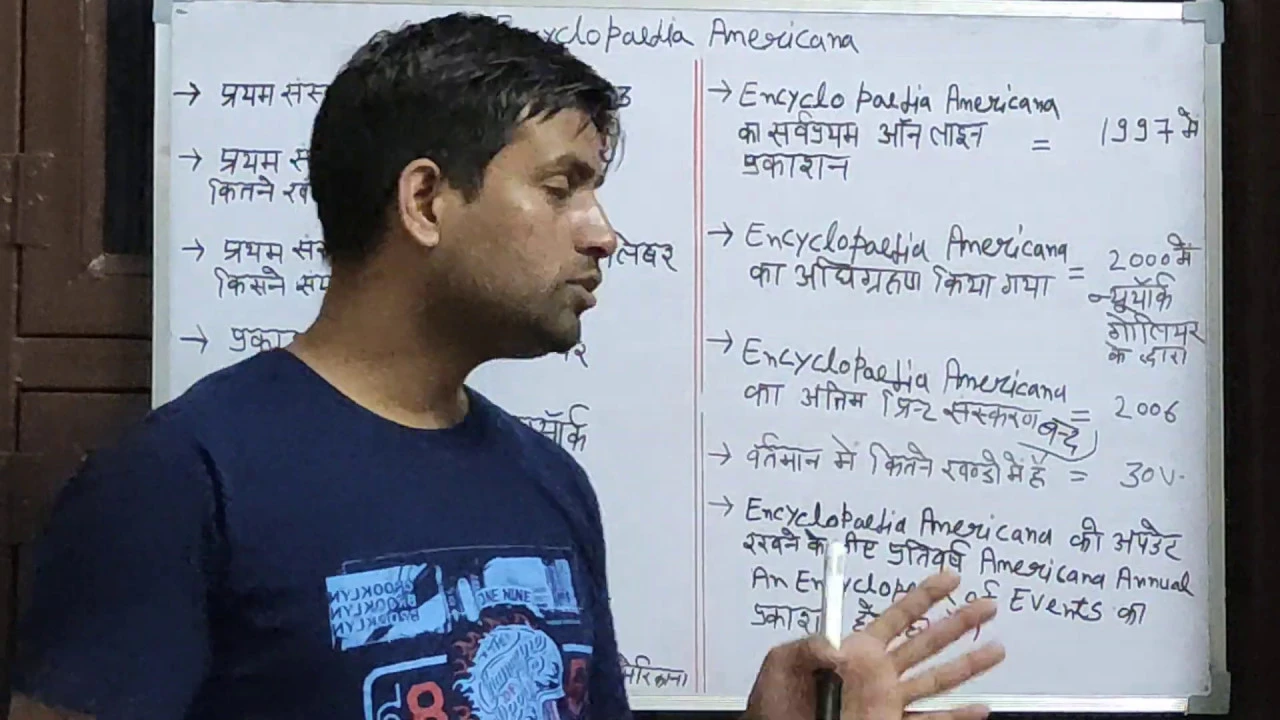 yclopaedia Americana
→ प्रथम संस् 3
→ प्रथम सं
कितने ख
→ प्रथम सं लिबर
किसने स
→ प्रका
यॉर्क
मेरिकाना
→ Encyclopaedia Americana
का सर्वप्रथम ऑन लाइन = 1997 में
प्रकाशन
→ Encyclopaedia Americana
का अधिग्रहण किया गया = 2000 में
न्यूयॉर्क
ग्रोलियर
के द्वारा
→ Encyclopaedia Americana
का अन्तिम प्रिन्ट संस्करण = 2006
बन्द
→ वर्तमान में कितने खण्डो में है = 30 V.
→ Encyclopaedia Americana को अपडेट
रखने के लिए प्रतिवर्ष Americana Annual
An Encyclop of Events का
प्रकाश
BROOKLYN
BROOKLYN
BROOKLYN
ONE NINE
THE
8